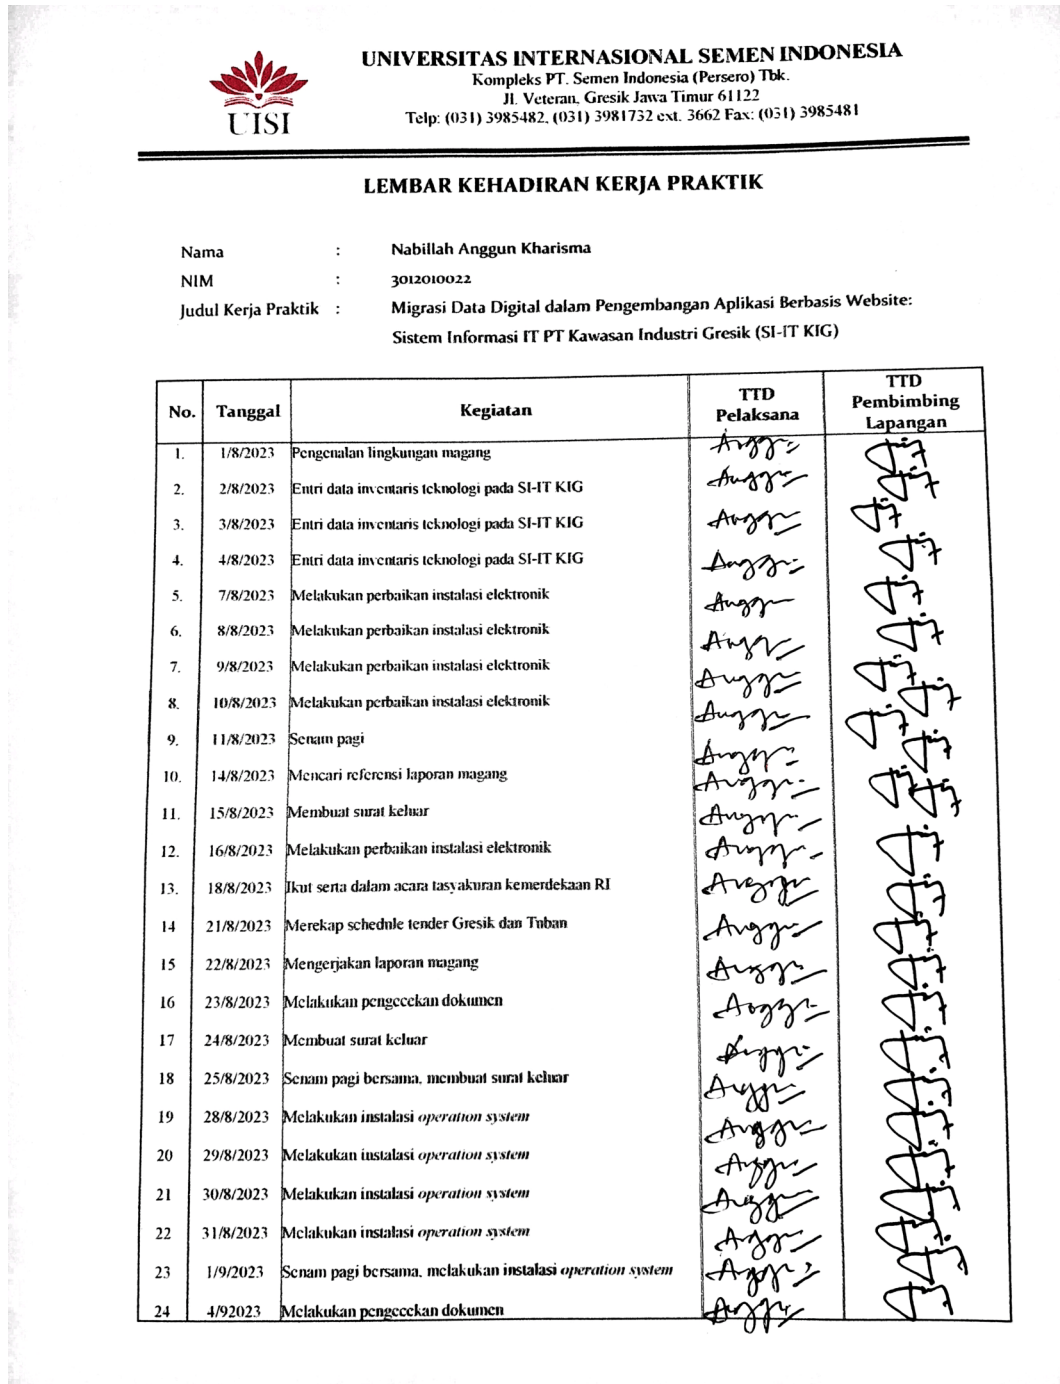 UISI
UNIVERSITAS INTERNASIONAL SEMEN INDONESIA
Kompleks PT. Semen Indonesia (Persero) Tbk.
Jl. Veteran, Gresik Jawa Timur 61122
Telp: (031) 3985482, (031) 3981732 ext. 3662 Fax: (031) 3985481
LEMBAR KEHADIRAN KERJA PRAKTIK
Nama : Nabillah Anggun Kharisma
NIM : 3012010022
Judul Kerja Praktik : Migrasi Data Digital dalam Pengembangan Aplikasi Berbasis Website:
Sistem Informasi IT PT Kawasan Industri Gresik (SI-IT KIG)
No. Tanggal Kegiatan TTD Pelaksana TTD Pembimbing Lapangan
1. 1/8/2023 Pengenalan lingkungan magang
2. 2/8/2023 Entri data inventaris teknologi pada SI-IT KIG
3. 3/8/2023 Entri data inventaris teknologi pada SI-IT KIG
4. 4/8/2023 Entri data inventaris teknologi pada SI-IT KIG
5. 7/8/2023 Melakukan perbaikan instalasi elektronik
6. 8/8/2023 Melakukan perbaikan instalasi elektronik
7. 9/8/2023 Melakukan perbaikan instalasi elektronik
8. 10/8/2023 Melakukan perbaikan instalasi elektronik
9. 11/8/2023 Senam pagi
10. 14/8/2023 Mencari referensi laporan magang
11. 15/8/2023 Membuat surat keluar
12. 16/8/2023 Melakukan perbaikan instalasi elektronik
13. 18/8/2023 Ikut serta dalam acara tasyakuran kemerdekaan RI
14 21/8/2023 Merekap schedule tender Gresik dan Tuban
15 22/8/2023 Mengerjakan laporan magang
16 23/8/2023 Melakukan pengecekan dokumen
17 24/8/2023 Membuat surat keluar
18 25/8/2023 Senam pagi bersama, membuat surat keluar
19 28/8/2023 Melakukan instalasi operation system
20 29/8/2023 Melakukan instalasi operation system
21 30/8/2023 Melakukan instalasi operation system
22 31/8/2023 Melakukan instalasi operation system
23 1/9/2023 Senam pagi bersama, melakukan instalasi operation system
24 4/92023 Melakukan pengecekan dokumen